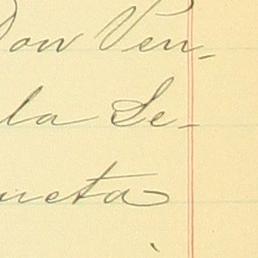 Don Ven-
la Se-
ueta